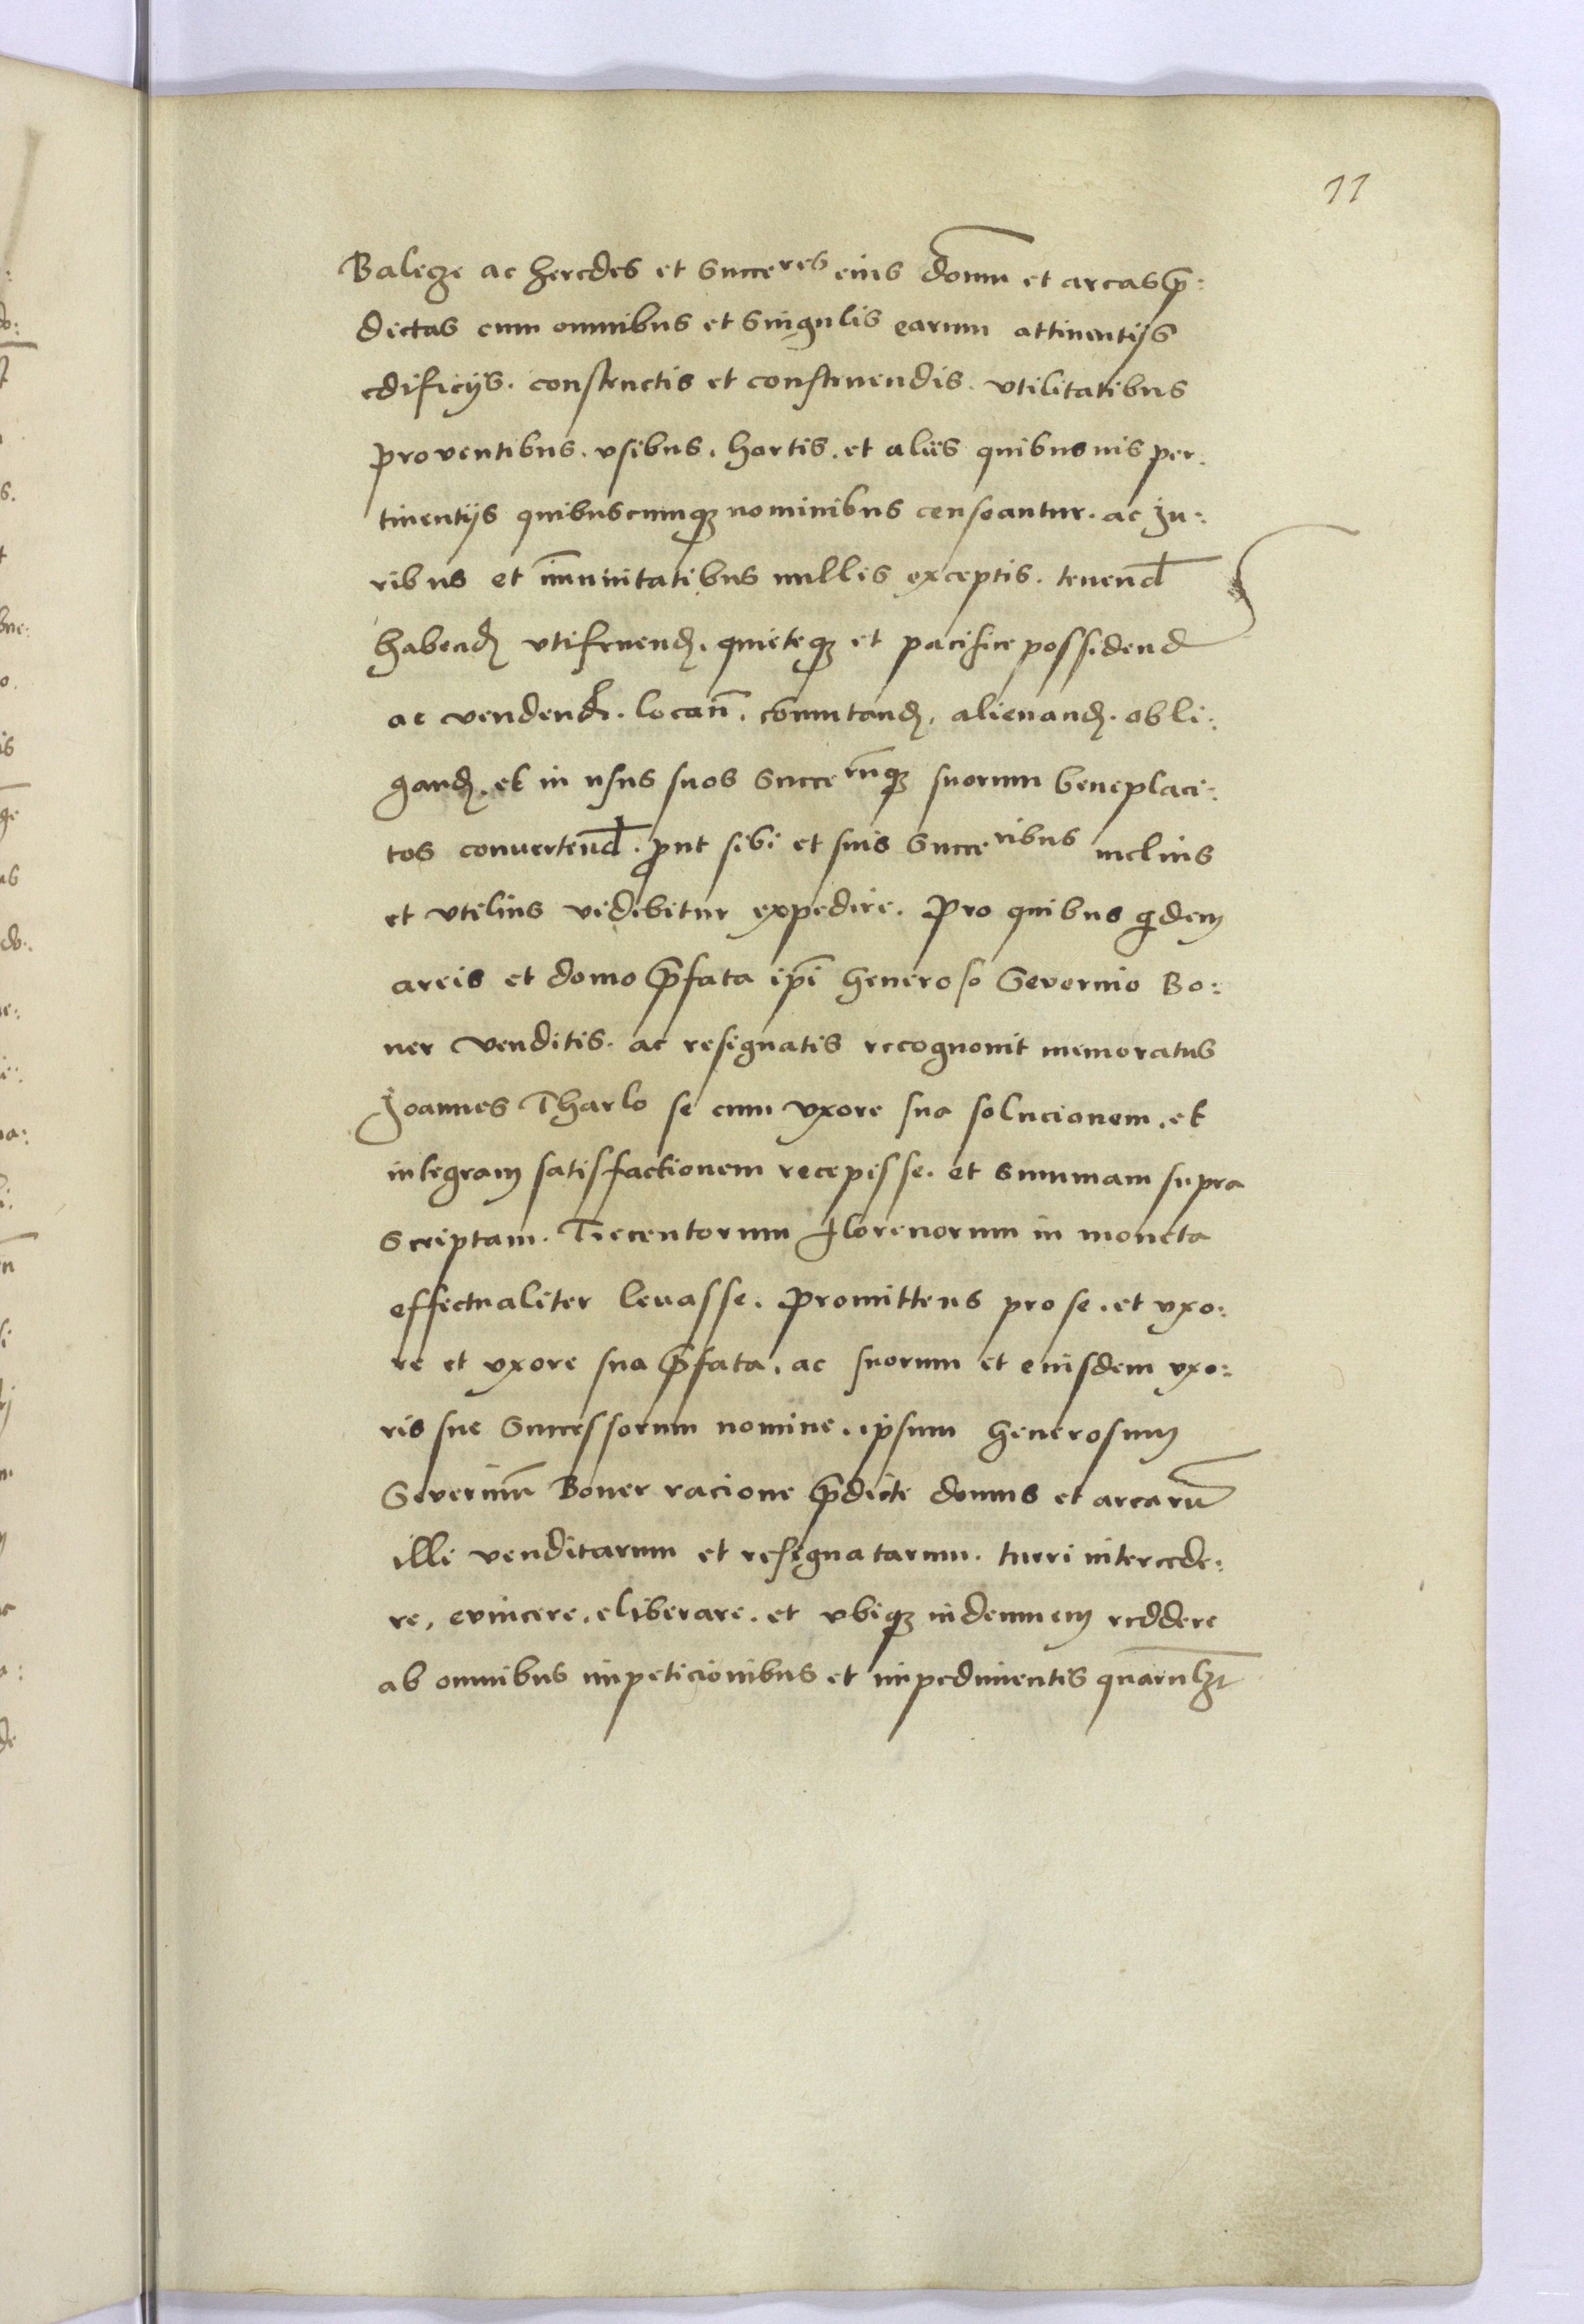 11
Balicze ac heredes et Succeres eius domū et areas p̄:
dictas cum omnibus et Singulis earum attinentijs
edificijs. constructis et construendis. vtilitatibus
proventibus. vsibus. hortis. et aliis quibusuis per:
tinentijs quibuscumqꝫ nominibus censeantur. ac Ju:
ribus et im̄unitatibus nullis exceptis. tenend
habend vtifruend. quieteqꝫ et pacifice possidend
ac vendend. locan̄. com̄utand. alienand. obli:
gand. et in usus suos Succerūqꝫ suorum beneplaci:
tos convertend. prut sibi et suis Succeribus melius
et vtilius videbitur expedire. Pro quibus qdem
areis et domo p̄fata ip̄i Generoso Severino Bo:
ner venditis. ac resignatis recognouit memoratus
Joannes Tharlo se cum vxore sua solucionem. et
integram satisfactionem recepisse. et summam supra
Scriptam. Trecentorum florenorum in moneta
effectualiter levasse. Promittens pro se. et vxo:
re et vxore sua p̄fata. ac suorum et eiusdem vxo:
ris sue Successorum nomine. ipsum Generosum
Severinū Boner racione p̄dicte domus et arearū
illi venditarum et resignatarum. tueri intercede:
re, evincere. eliberare. et vbiqꝫ indemnem reddere
ab omnibus impeticionibus et impedimentis quarūlꝫt